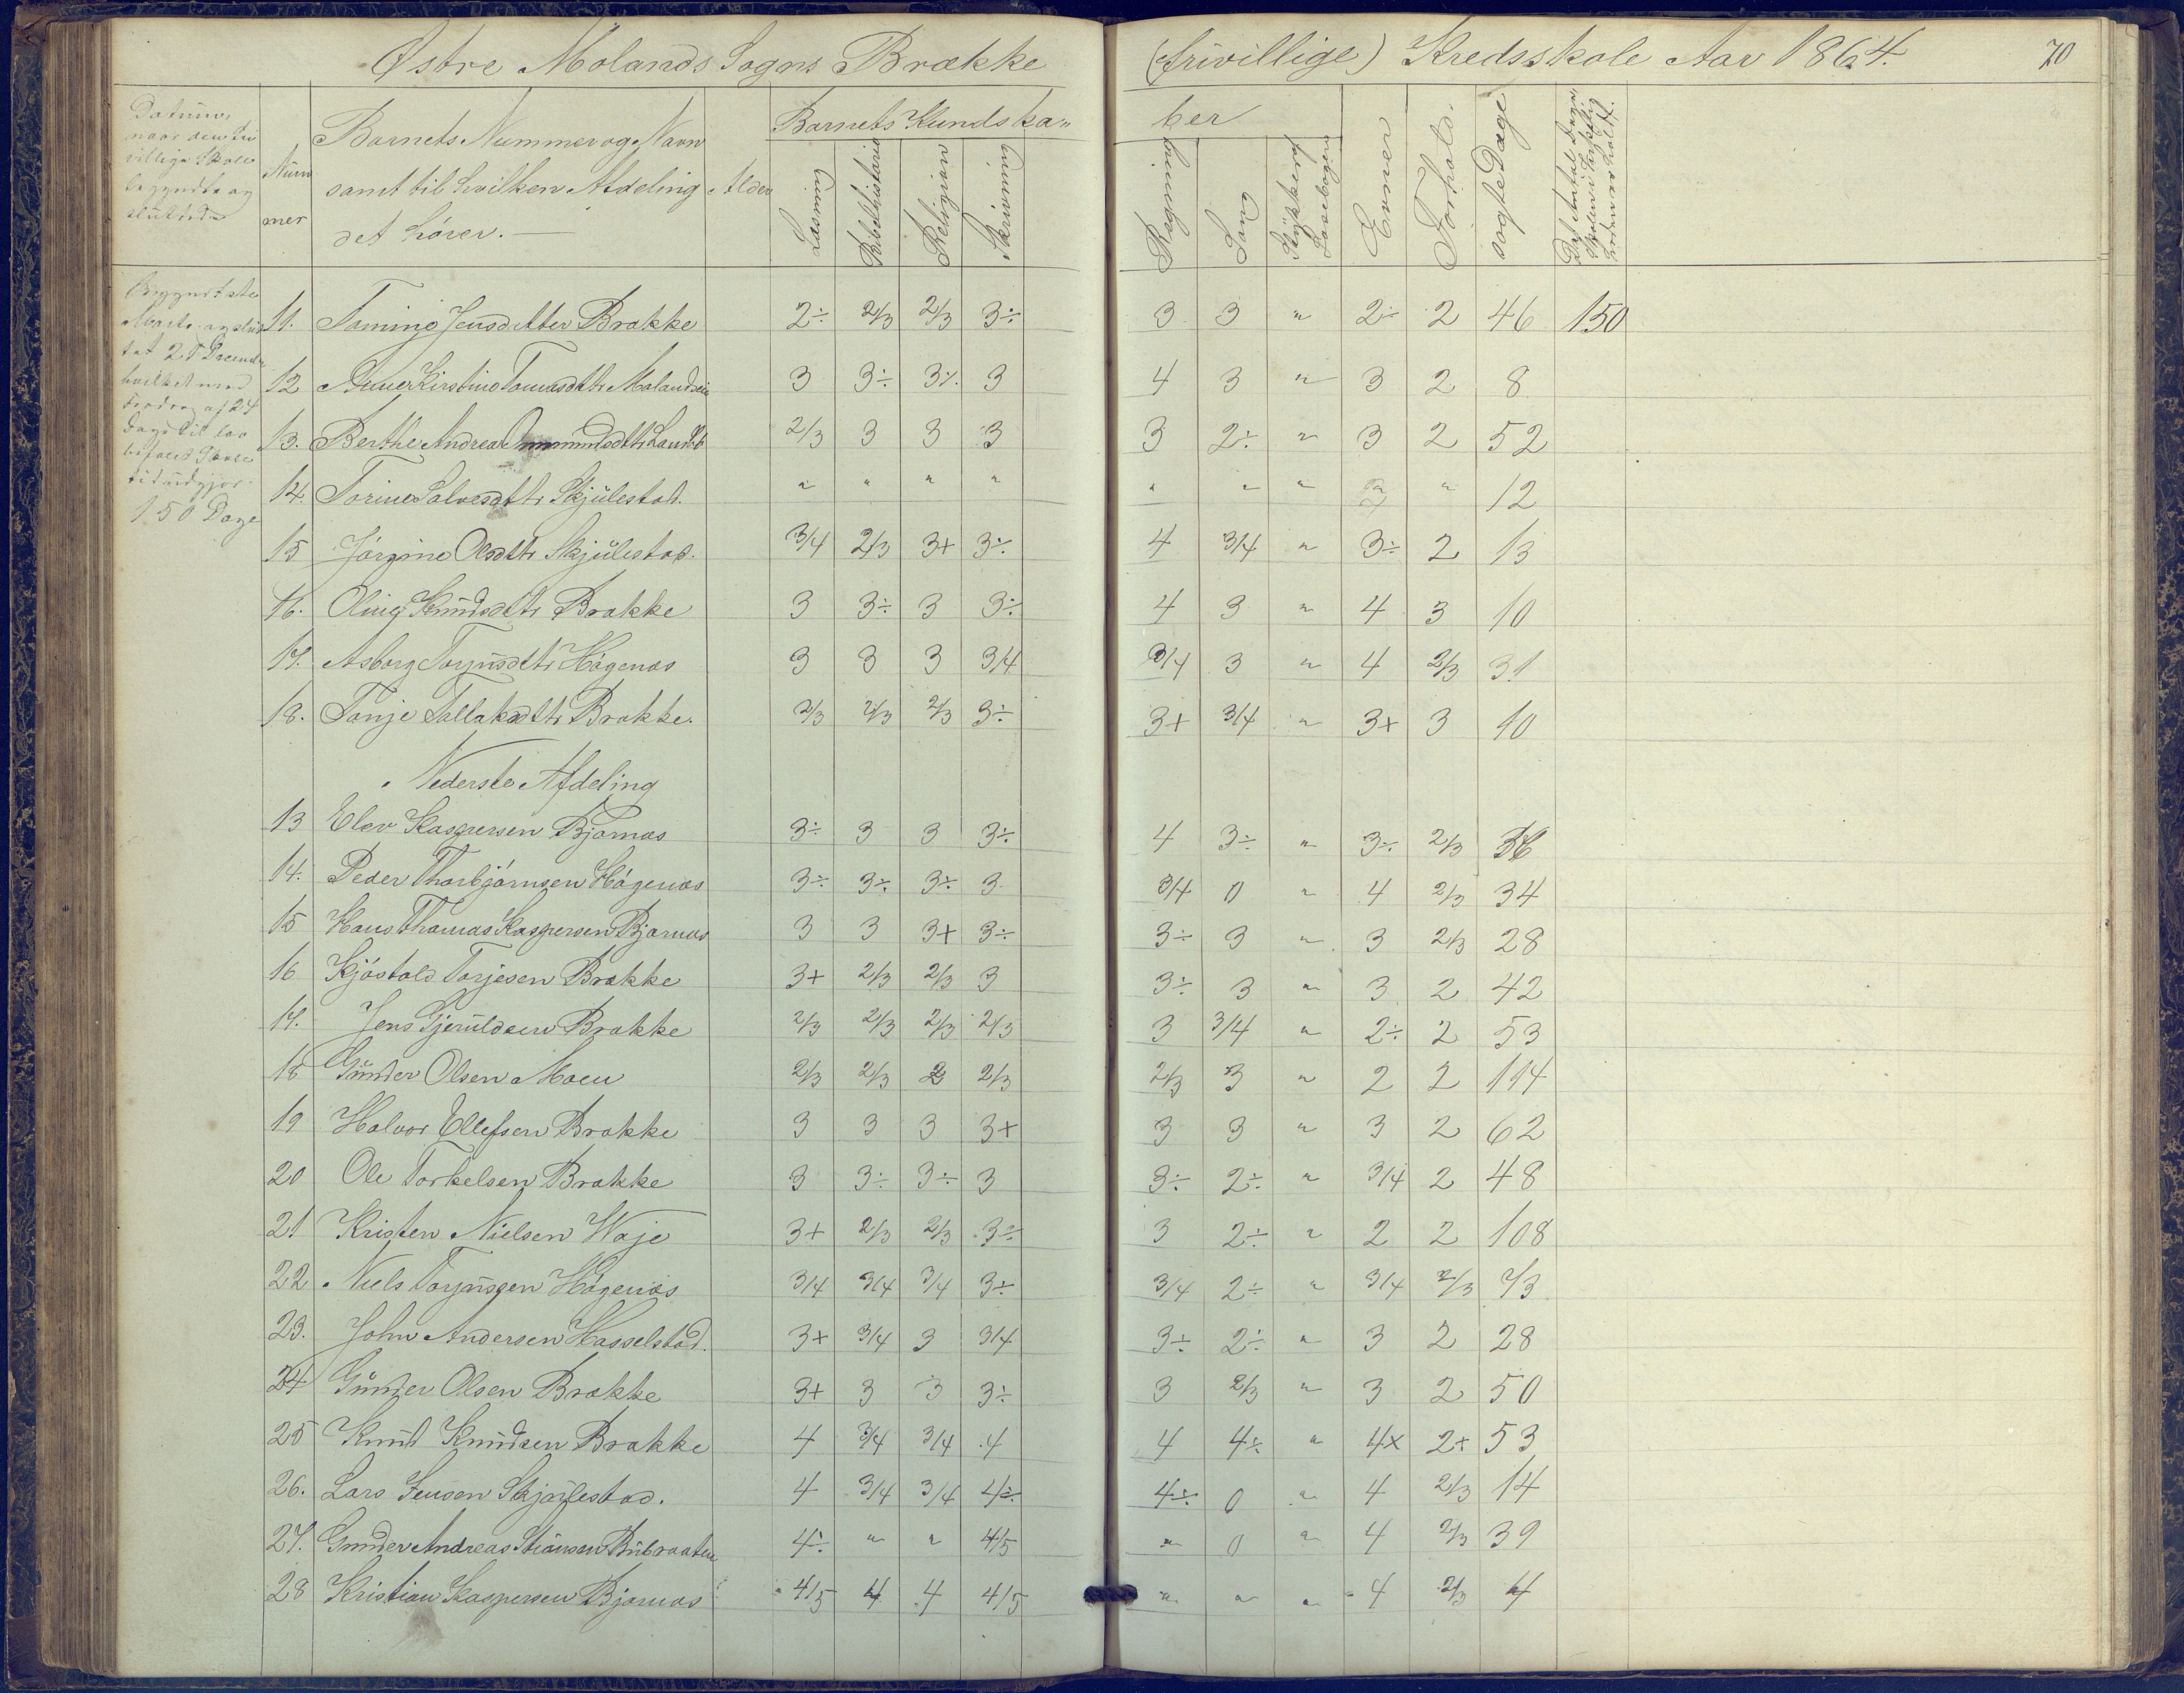 Østre Molands Sogns Brække (frivillige) Kredsskole Aar 1864. 70
Datum, naar den fri villige Skole begyndte og sluttede
Num mer
Barnets Nummer og Navn samt til hvilken Afdeling det hører. —
Alder
Barnets Kundska„ ber
Læsning
Bibelhistorie
Religion
Skrivning
Regning
Sang
Stykker af Læsebogen
Evner
Forhold.
søgte Dage
Det Antal Dage
150 Dage
11. Taming Jensdatter Brække 2÷ 2/3 2/3 3÷ 3 3 " 2÷ 2 46 150
12 Anne Kirstine Tomasdtr. 3 3÷ 3÷ 3 4 3 " 3 2 8
13. Berthe Andrea 2/3 3 3 3 3 2÷ " 3 2 52
14. Torine Salvesdttr Skjulestad. " " " " " " " " 12
15 Jørgine Olsdttr Skjulestad. 3/4 2/3 3+ 3÷ 4 3/4 " 3÷ 2 13
16. Oling Knudsdttr Brække 3 3÷ 3 3÷ 4 3 " 4 3 10
17. Asborg Torjusdttr Høgenæs 3 3 3 3/4 3/4 3 " 4 2/3 31
18. Tonje Tallaksdttr Brække. 2/3 2/3 2/3 3÷ 3+ 3/4 " 3+ 3 10
Nederste Afdeling
13 Elev Kaspersen Bjørnaas 3÷ 3 3 3÷ 4 3÷ " 3÷ 2/3 36
14. Peder Thorbjørnsen Høgenæs 3÷ 3÷ 3÷ 3 3/4 0 " 4 2/3 34
15 Hans Thomas Kaspersen Bjørnaas 3 3 3+ 3÷ 3÷ 3 " 3 2/3 28
16 Kjøstold Torjesen Brække 3+ 2/3 2/3 3 3÷ 3 " 3 2 42
17. Jens Gjeruldsen Brække 2/3 2/3 2/3 2/3 3 3/4 " 2÷ 2 53
18 Gunder Olsen Moen 2/3 2/3 2 2/3 2/3 3 " 2 2 114
19 Halvor Ellefsen Brække 3 3 3 3+ 3 3 " 3 2 62
20 Ole Torkelsen Brække 3 3÷ 3÷ 3 3÷ 2÷ " 3/4 2 48
21 Kristen Nielsen Waje 3+ 2/3 2/3 3÷ 3 2÷ " 2 2 108
22 Niels Torjussen Høgenæs 3/4 3/4 3/4 3÷ 3/4 2÷ " 3/4 2/3 73
23. John Andersen Hasselstad. 3+ 3/4 3 3/4 3÷ 2÷ " 3 2 28
24 Gunder Olsen Brække 3+ 3 3 3÷ 3 2/3 " 3 2 50
25 Knud Knudsen Brække 4 3/4 3/4 4 4 4÷ " 4+ 2+ 53
26. Lars Jensen Skjulestad. 4 3/4 3/4 4÷ 4÷ 0 " 4 2/3 14
27. Gunder Andreas Stiansen Bubraaten 4÷ " " 4/5 " 0 " 4 2/3 39
28 Kristian Kaspersen Bjørnaas 4/5 4 4 4/5 " " " 4 2/3 4